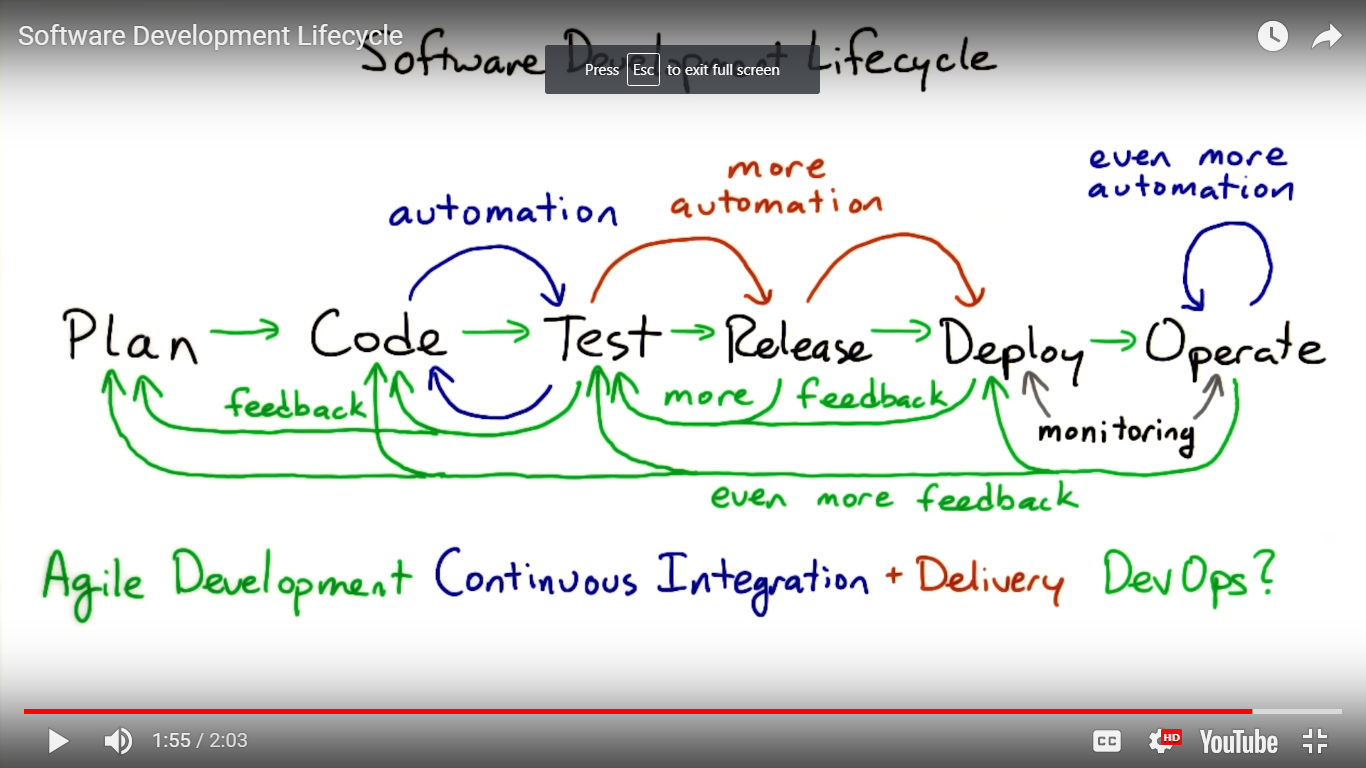 Software Development Lifecycle
Software Development Lifecycle
Press Esc to exit full screen
even more
automation
more
automation
automation
Plan → Code → Test → Release → Deploy → Operate
feedback
more feedback
monitoring
even more feedback
Agile Development Continuous Integration + Delivery DevOps?
1:55 / 2:03
CC
HD
YouTube